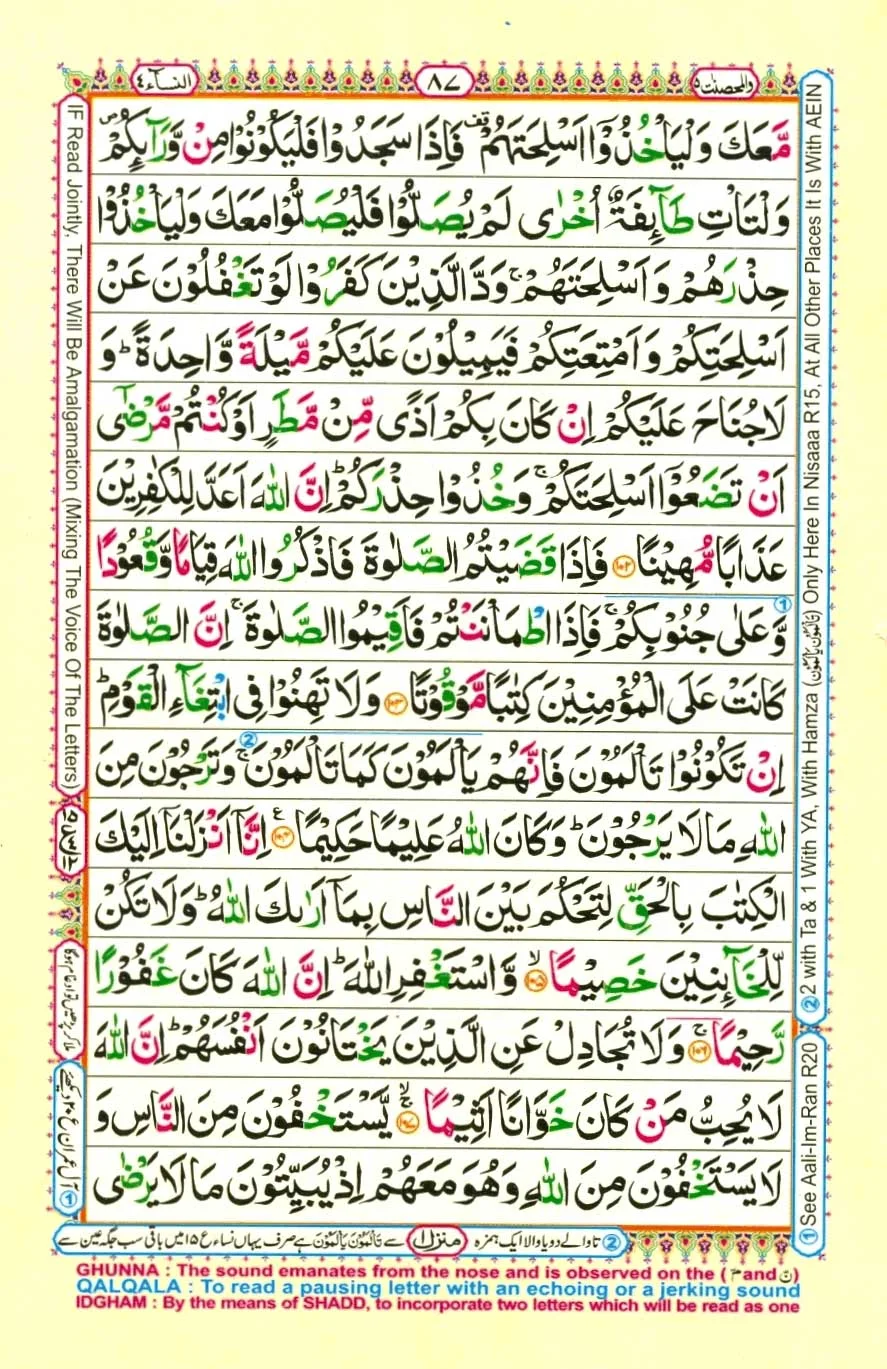 النسآء ٤
٨٧
والمحصنت ٥
مَّعَكَ وَلْيَاْخُذُوْۤا اَسْلِحَتَهُمْ ۫ قف فَاِذَا سَجَدُوْا فَلْيَكُوْنُوْا مِنْ وَّرَآئِكُمْ ۪ ص
وَلْتَاْتِ طَآئِفَةٌ اُخْرٰى لَمْ يُصَلُّوْا فَلْيُصَلُّوْا مَعَكَ وَلْيَاْخُذُوْا
حِذْرَهُمْ وَاَسْلِحَتَهُمْ ۚ وَدَّ الَّذِيْنَ كَفَرُوْا لَوْ تَغْفُلُوْنَ عَنْ
اَسْلِحَتِكُمْ وَاَمْتِعَتِكُمْ فَيَمِيْلُوْنَ عَلَيْكُمْ مَّيْلَةً وَّاحِدَةً ؕ وَ
لَا جُنَاحَ عَلَيْكُمْ اِنْ كَانَ بِكُمْ اَذًى مِّنْ مَّطَرٍ اَوْ كُنْتُمْ مَّرْضٰۤى
اَنْ تَضَعُوْۤا اَسْلِحَتَكُمْ ۚ وَخُذُوْا حِذْرَكُمْ ؕ اِنَّ اللّٰهَ اَعَدَّ لِلْكٰفِرِيْنَ
عَذَابًا مُّهِيْنًا ۝١٠٢ فَاِذَا قَضَيْتُمُ الصَّلٰوةَ فَاذْكُرُوا اللّٰهَ قِيَامًا وَّقُعُوْدًا
وَّعَلٰى جُنُوْبِكُمْ ۚ فَاِذَا اطْمَاْنَنْتُمْ فَاَقِيْمُوا الصَّلٰوةَ ۚ اِنَّ الصَّلٰوةَ
كَانَتْ عَلَى الْمُؤْمِنِيْنَ كِتٰبًا مَّوْقُوْتًا ۝١٠٣ وَلَا تَهِنُوْا فِى ابْتِغَآءِ الْقَوْمِ ؕ
اِنْ تَكُوْنُوْا تَاْلَمُوْنَ فَاِنَّهُمْ يَاْلَمُوْنَ كَمَا تَاْلَمُوْنَ ۚ وَتَرْجُوْنَ مِنَ
اللّٰهِ مَا لَا يَرْجُوْنَ ؕ وَكَانَ اللّٰهُ عَلِيْمًا حَكِيْمًا ۝١٠٤ ع اِنَّاۤ اَنْزَلْنَاۤ اِلَيْكَ
الْكِتٰبَ بِالْحَقِّ لِتَحْكُمَ بَيْنَ النَّاسِ بِمَاۤ اَرٰىكَ اللّٰهُ ؕ وَلَا تَكُنْ
لِّلْخَآئِنِيْنَ خَصِيْمًا ۝١٠٥ ۙ وَّاسْتَغْفِرِ اللّٰهَ ؕ اِنَّ اللّٰهَ كَانَ غَفُوْرًا
رَّحِيْمًا ۝١٠٦ ۚ وَلَا تُجَادِلْ عَنِ الَّذِيْنَ يَخْتَانُوْنَ اَنْفُسَهُمْ ؕ اِنَّ اللّٰهَ
لَا يُحِبُّ مَنْ كَانَ خَوَّانًا اَثِيْمًا ۝١٠٧ ۚۙ يَّسْتَخْفُوْنَ مِنَ النَّاسِ وَ
لَا يَسْتَخْفُوْنَ مِنَ اللّٰهِ وَهُوَ مَعَهُمْ اِذْ يُبَيِّتُوْنَ مَا لَا يَرْضٰى
② تا والے دو یا والا ایک ہمزہ منزل ١ سے تَاْلَمُوْنَ يَاْلَمُوْنَ ہے صرف یہاں نساء ع ١٥ میں باقی سب جگہ عین سے
GHUNNA : The sound emanates from the nose and is observed on the ( مّ and نّ )
QALQALA : To read a pausing letter with an echoing or a jerking sound
IDGHAM : By the means of SHADD, to incorporate two letters which will be read as one
IF Read Jointly, There Will Be Amalgamation (Mixing The Voice Of The Letters)
ملا کر پڑھیں تو ادغام ہوگا
① آل عمران ع ٢٠ دیکھئے
② 2 with Ta & 1 With YA, With Hamza (تَاْلَمُوْنَ يَاْلَمُوْنَ) Only Here In Nisaaa R15, At All Other Places It Is With AEIN
① See Aali-Im-Ran R20